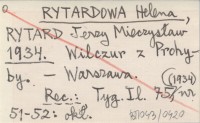 RYTARDOWA Helena,
RYTARD Jerzy Mieczysław
1934. Wilczur z Prohy-
by. – Warszawa. (1934)
Rec.: Tyg. Il. 75/nr
51-52: okł.